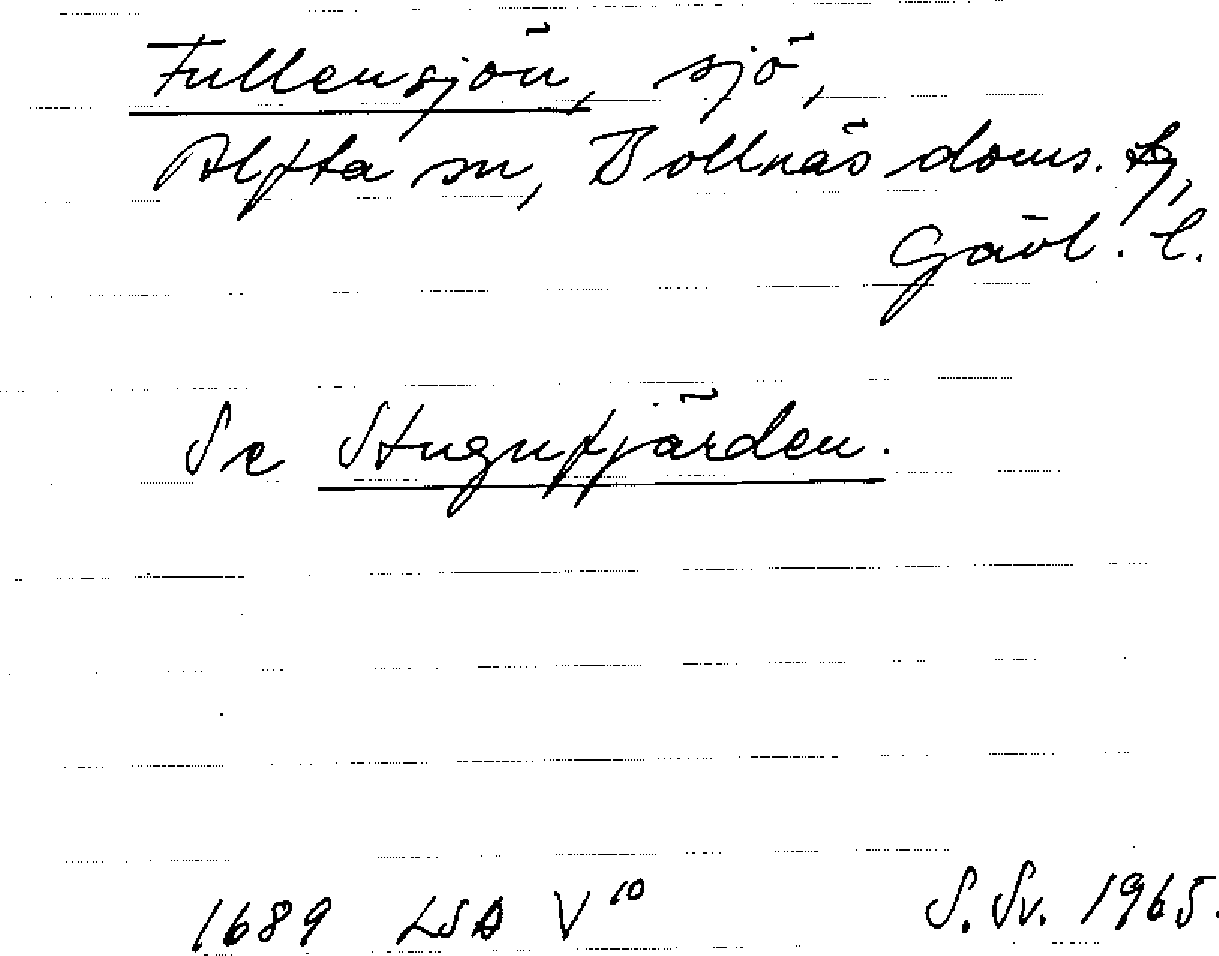 Fullensjön, sjö,
Alfta sn, Bollnäs doms. tg,
Gävl. l.
Se Stugufjärden.
1689 LSA V¹⁰ S. Sv. 1965.